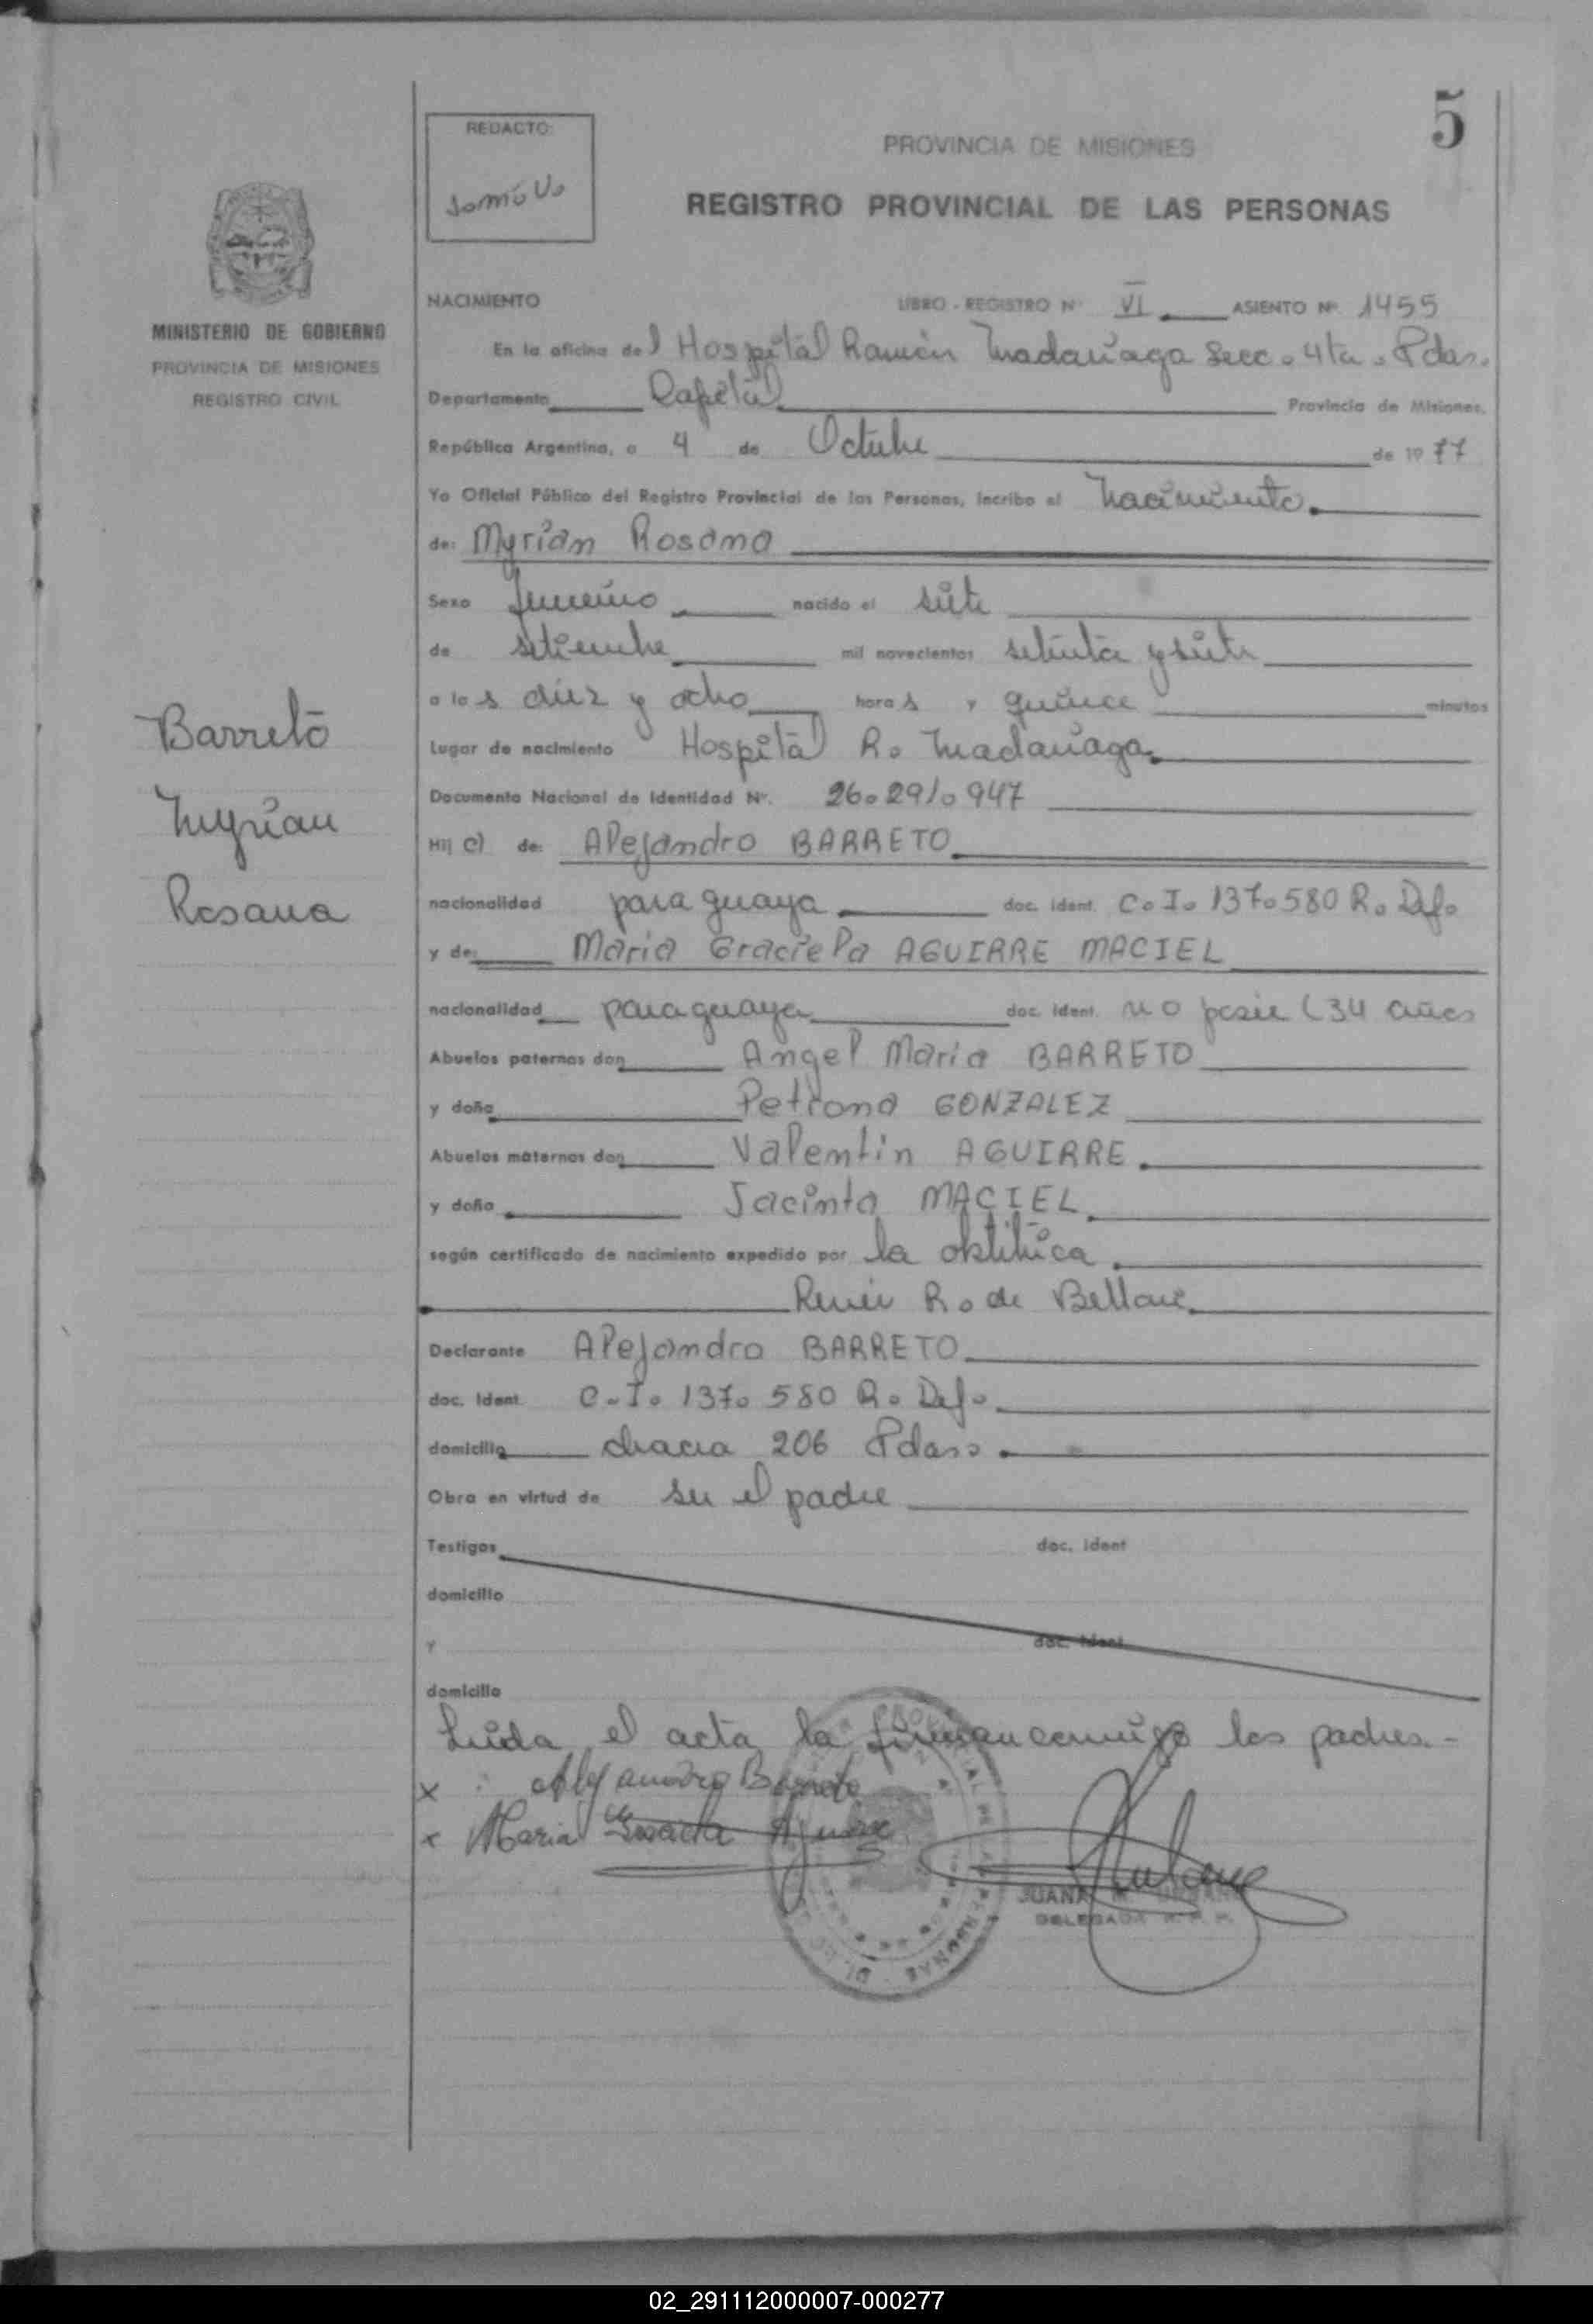 5
REDACTO:
PROVINCIA DE MISIONES
REGISTRO PROVINCIAL DE LAS PERSONAS
MINISTERIO DE GOBIERNO
PROVINCIA DE MISIONES
REGISTRO CIVIL
NACIMIENTO LIBRO - REGISTRO Nº VI ASIENTO Nº 1455
En la oficina del Hospital Ramón Madariaga Secc. 4ta. Pdas.
Departamento Capital Provincia de Misiones.
República Argentina, a 4 de Octubre de 1977
Yo Oficial Público del Registro Provincial de las Personas, incribo el Nacimiento.
de: Myrian Rosana
Sexo femenino nacido el siete
de setiembre mil novecientos setenta y siete
a las diez y ocho horas y quince minutos
Lugar de nacimiento Hospital R. Madariaga.
Documento Nacional de Identidad Nº. 26.291.947
Barreto
Myrian
Rosana
Hija de: Alejandro BARRETO
nacionalidad paraguaya doc. ident. C.I. 137.580 R.
y de: Maria Graciela AGUIRRE MACIEL
nacionalidad paraguaya doc. ident. no posee (34 años
Abuelos paternos don Angel Maria BARRETO
y doña Petrona GONZALEZ
Abuelos maternos don Valentin AGUIRRE.
y doña Jacinta MACIEL.
según certificado de nacimiento expedido por la obstétrica
R. de
Declarante Alejandro BARRETO
doc. ident. C.I. 137.580 R.
domicilio chacra 206 Pdas.
Obra en virtud de ser el padre
Testigos doc. ident
domicilio
y doc. ident
domicilio
Leida el acta la firman conmigo los padres.-
x Alejandro Barreto
x Maria Graciela Aguirre
JUANA
DELEGADA R. P. P.
02_291112000007-000277